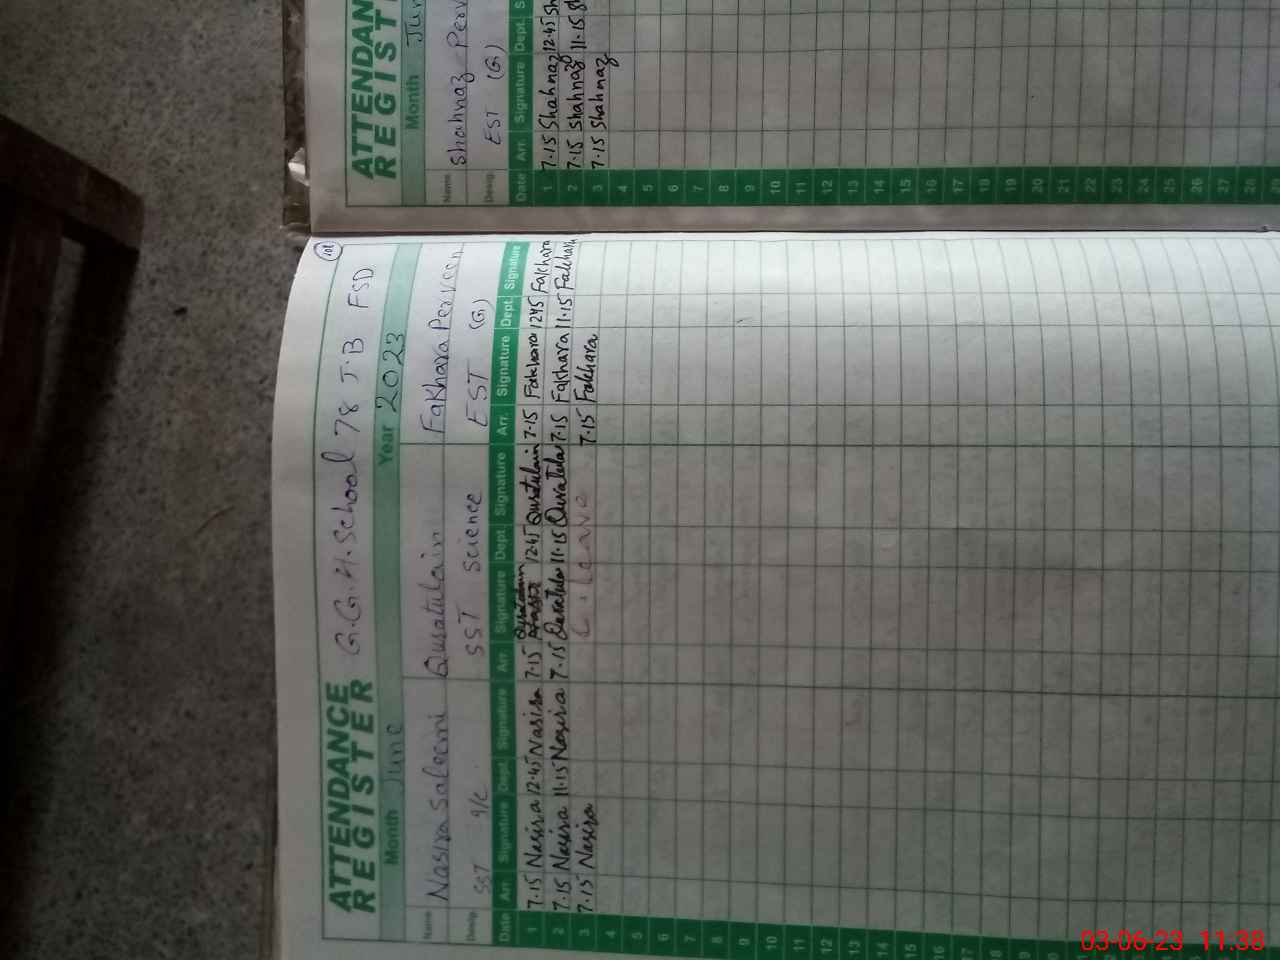 101
ATTENDANCE
REGISTER
G.G.H.School 78 J.B FSD
Month June Year 2023
Name Nasira Saleemi Quratulain Fakhara Perveen
Desig. SST I/C SST Science EST (G)
Date Arr. Signature Dept. Signature Arr. Signature Dept. Signature Arr. Signature Dept. Signature
1 7.15 Nasira 12.45 Nasira 7.15 Quratulain 12.45 Quratulain 7.15 Fakhara 12.45 Fakhara
2 7.15 Nasira 11.15 Nasira 7.15 Quratulai 11.15 Quratulai 7.15 Fakhara 11.15 Fakhara
3 7.15 Nasira C.leave 7.15 Fakhara
4
5
6
7
8
9
10
11
12
13
14
15
16
17
18
ATTENDAN
REGIST
Month Jun
Name Shahnaz Perv
Desig. EST (G)
Date Arr. Signature Dept. S
1 7.15 Shahnaz 12.45 Sh
2 7.15 Shahnaz 11.15 Sh
3 7.15 Shahnaz
4
5
6
7
8
9
10
11
12
13
14
15
16
17
18
19
20
21
22
23
24
25
26
27
28
03-06-23 11:38